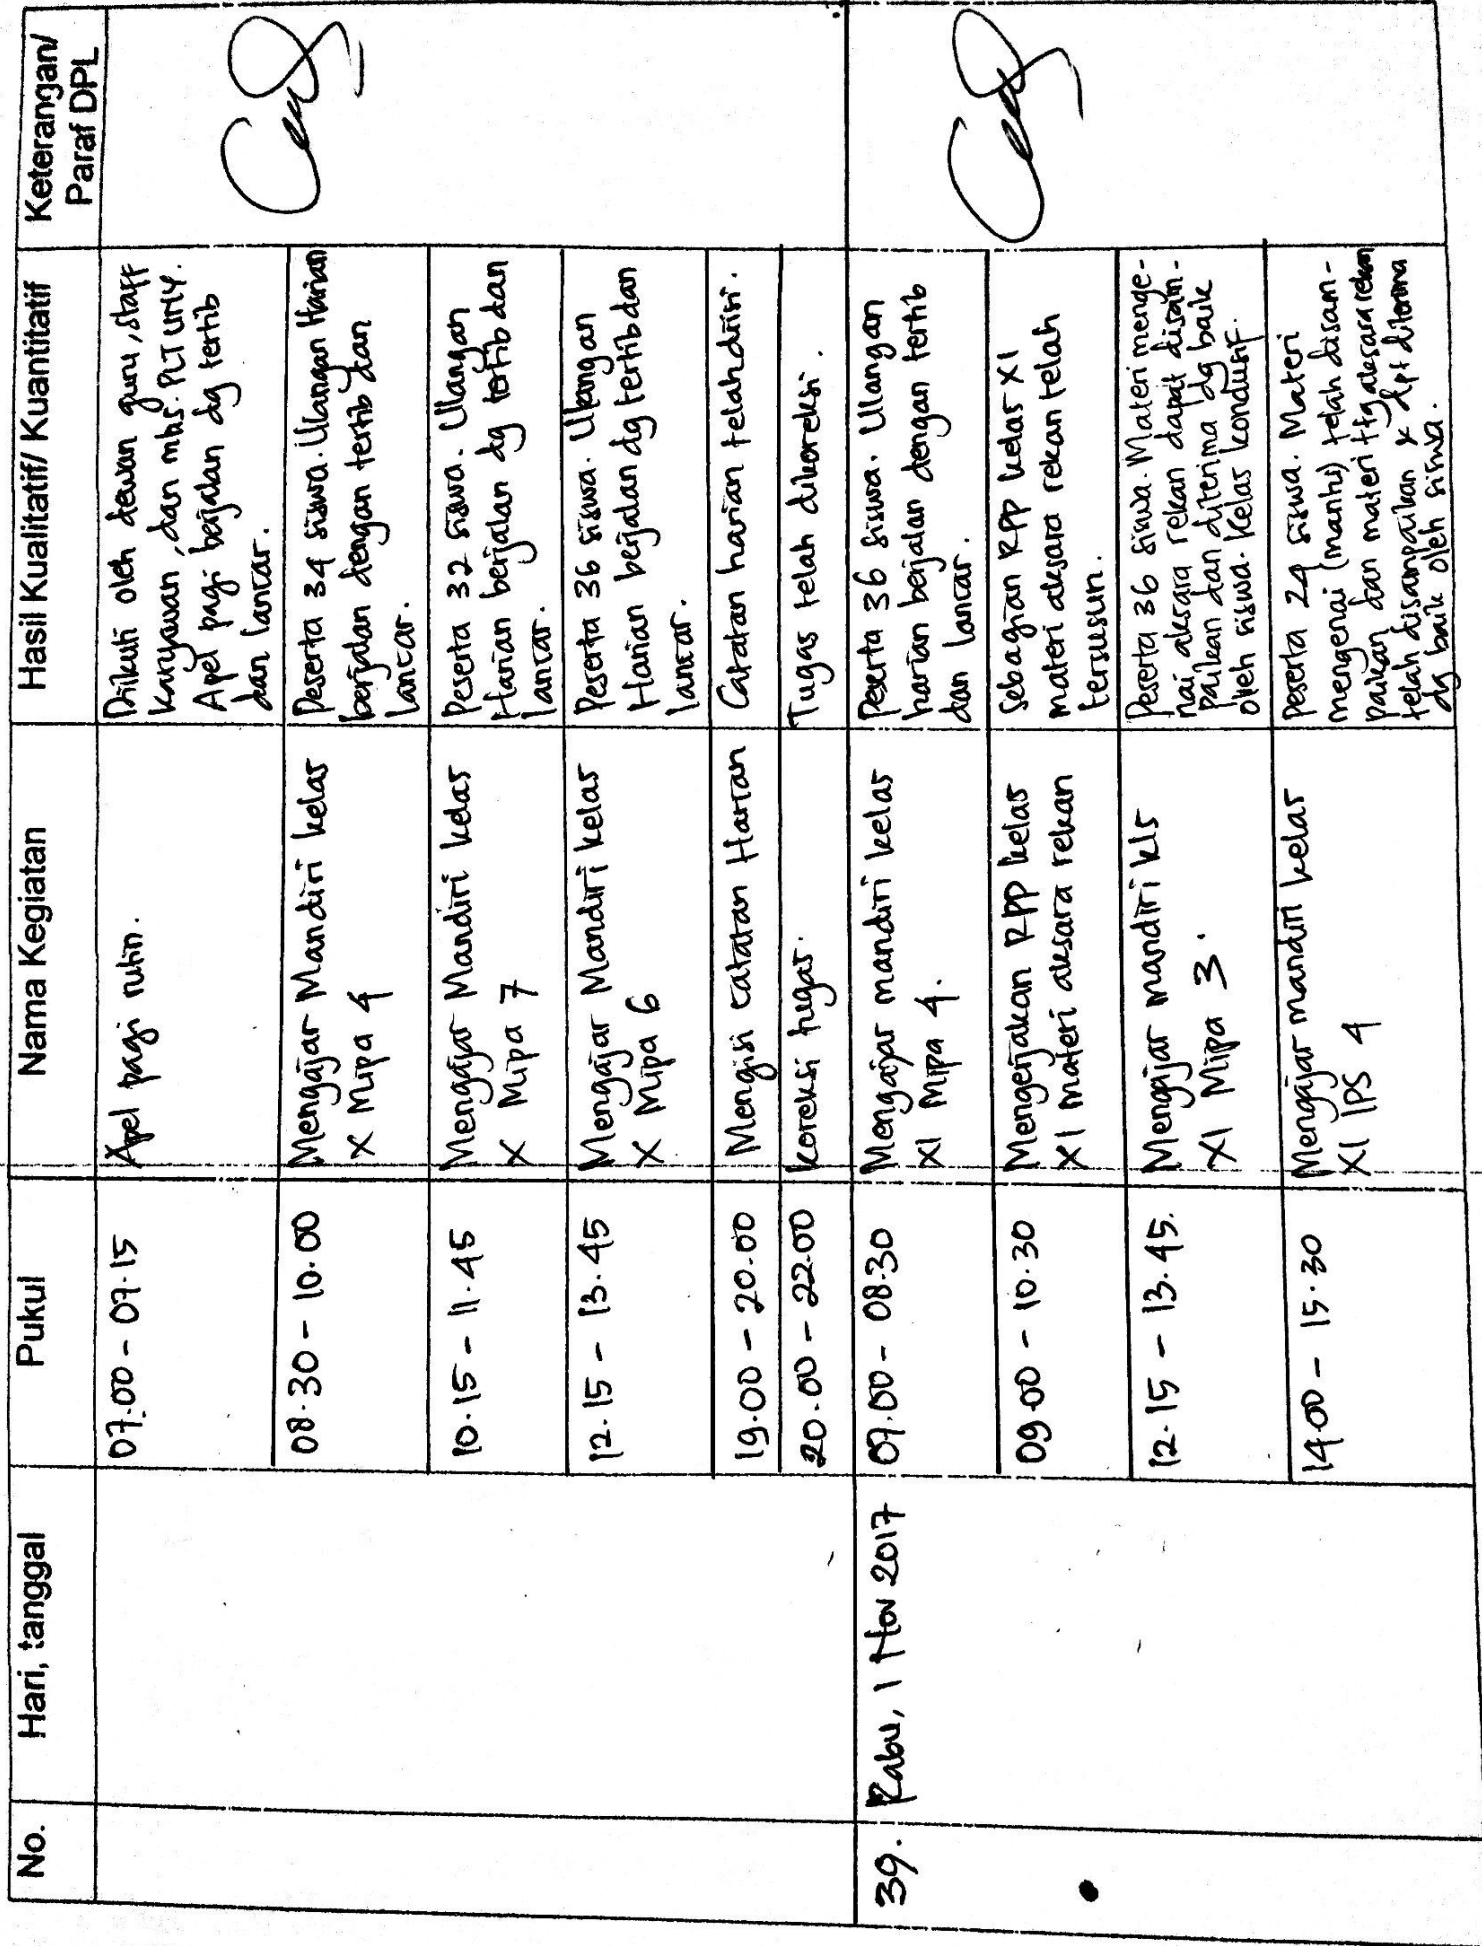 No.
Hari, tanggal
Pukul
Nama Kegiatan
Hasil Kualitatif/ Kuantitatif
Keterangan/
Paraf DPL
07.00 - 07.15
Apel pagi rutin.
Diikuti oleh dewan guru, staff
karyawan, dan mhs. PLT UNY.
Apel pagi berjalan dg tertib
dan lancar.
08.30 - 10.00
Mengajar Mandiri kelas
X Mipa 4
Peserta 34 siswa. Ulangan Harian
berjalan dengan tertib dan
lancar.
10.15 - 11.45
Mengajar Mandiri kelas
X Mipa 7
Peserta 32 siswa. Ulangan
Harian berjalan dg tertib dan
lancar.
12.15 - 13.45
Mengajar Mandiri kelas
X Mipa 6
Peserta 36 siswa. Ulangan
Harian berjalan dg tertib dan
lancar.
19.00 - 20.00
Mengisi catatan Harian
Catatan harian telah diisi.
20.00 - 22.00
koreksi tugas.
Tugas telah dikoreksi.
39.
Rabu, 1 Nov 2017
07.00 - 08.30
Mengajar mandiri kelas
XI Mipa 4.
Peserta 36 siswa. Ulangan
harian berjalan dengan tertib
dan lancar.
09.00 - 10.30
Mengerjakan RPP kelas
XI materi aksara rekan
Sebagian RPP kelas XI
materi aksara rekan telah
tersusun.
12.15 - 13.45.
Mengajar mandiri kls
XI Mipa 3.
Peserta 36 siswa. Materi menge-
nai aksara rekan dapat disam-
paikan dan diterima dg baik
oleh siswa. Kelas kondusif.
14.00 - 15.30
Mengajar mandiri kelas
XI IPS 4
Peserta 24 siswa. Materi
mengenai (mantu) telah disam-
paikan dan materi ttg aksara rekan
telah disampaikan & dpt diterima
dg baik oleh siswa.